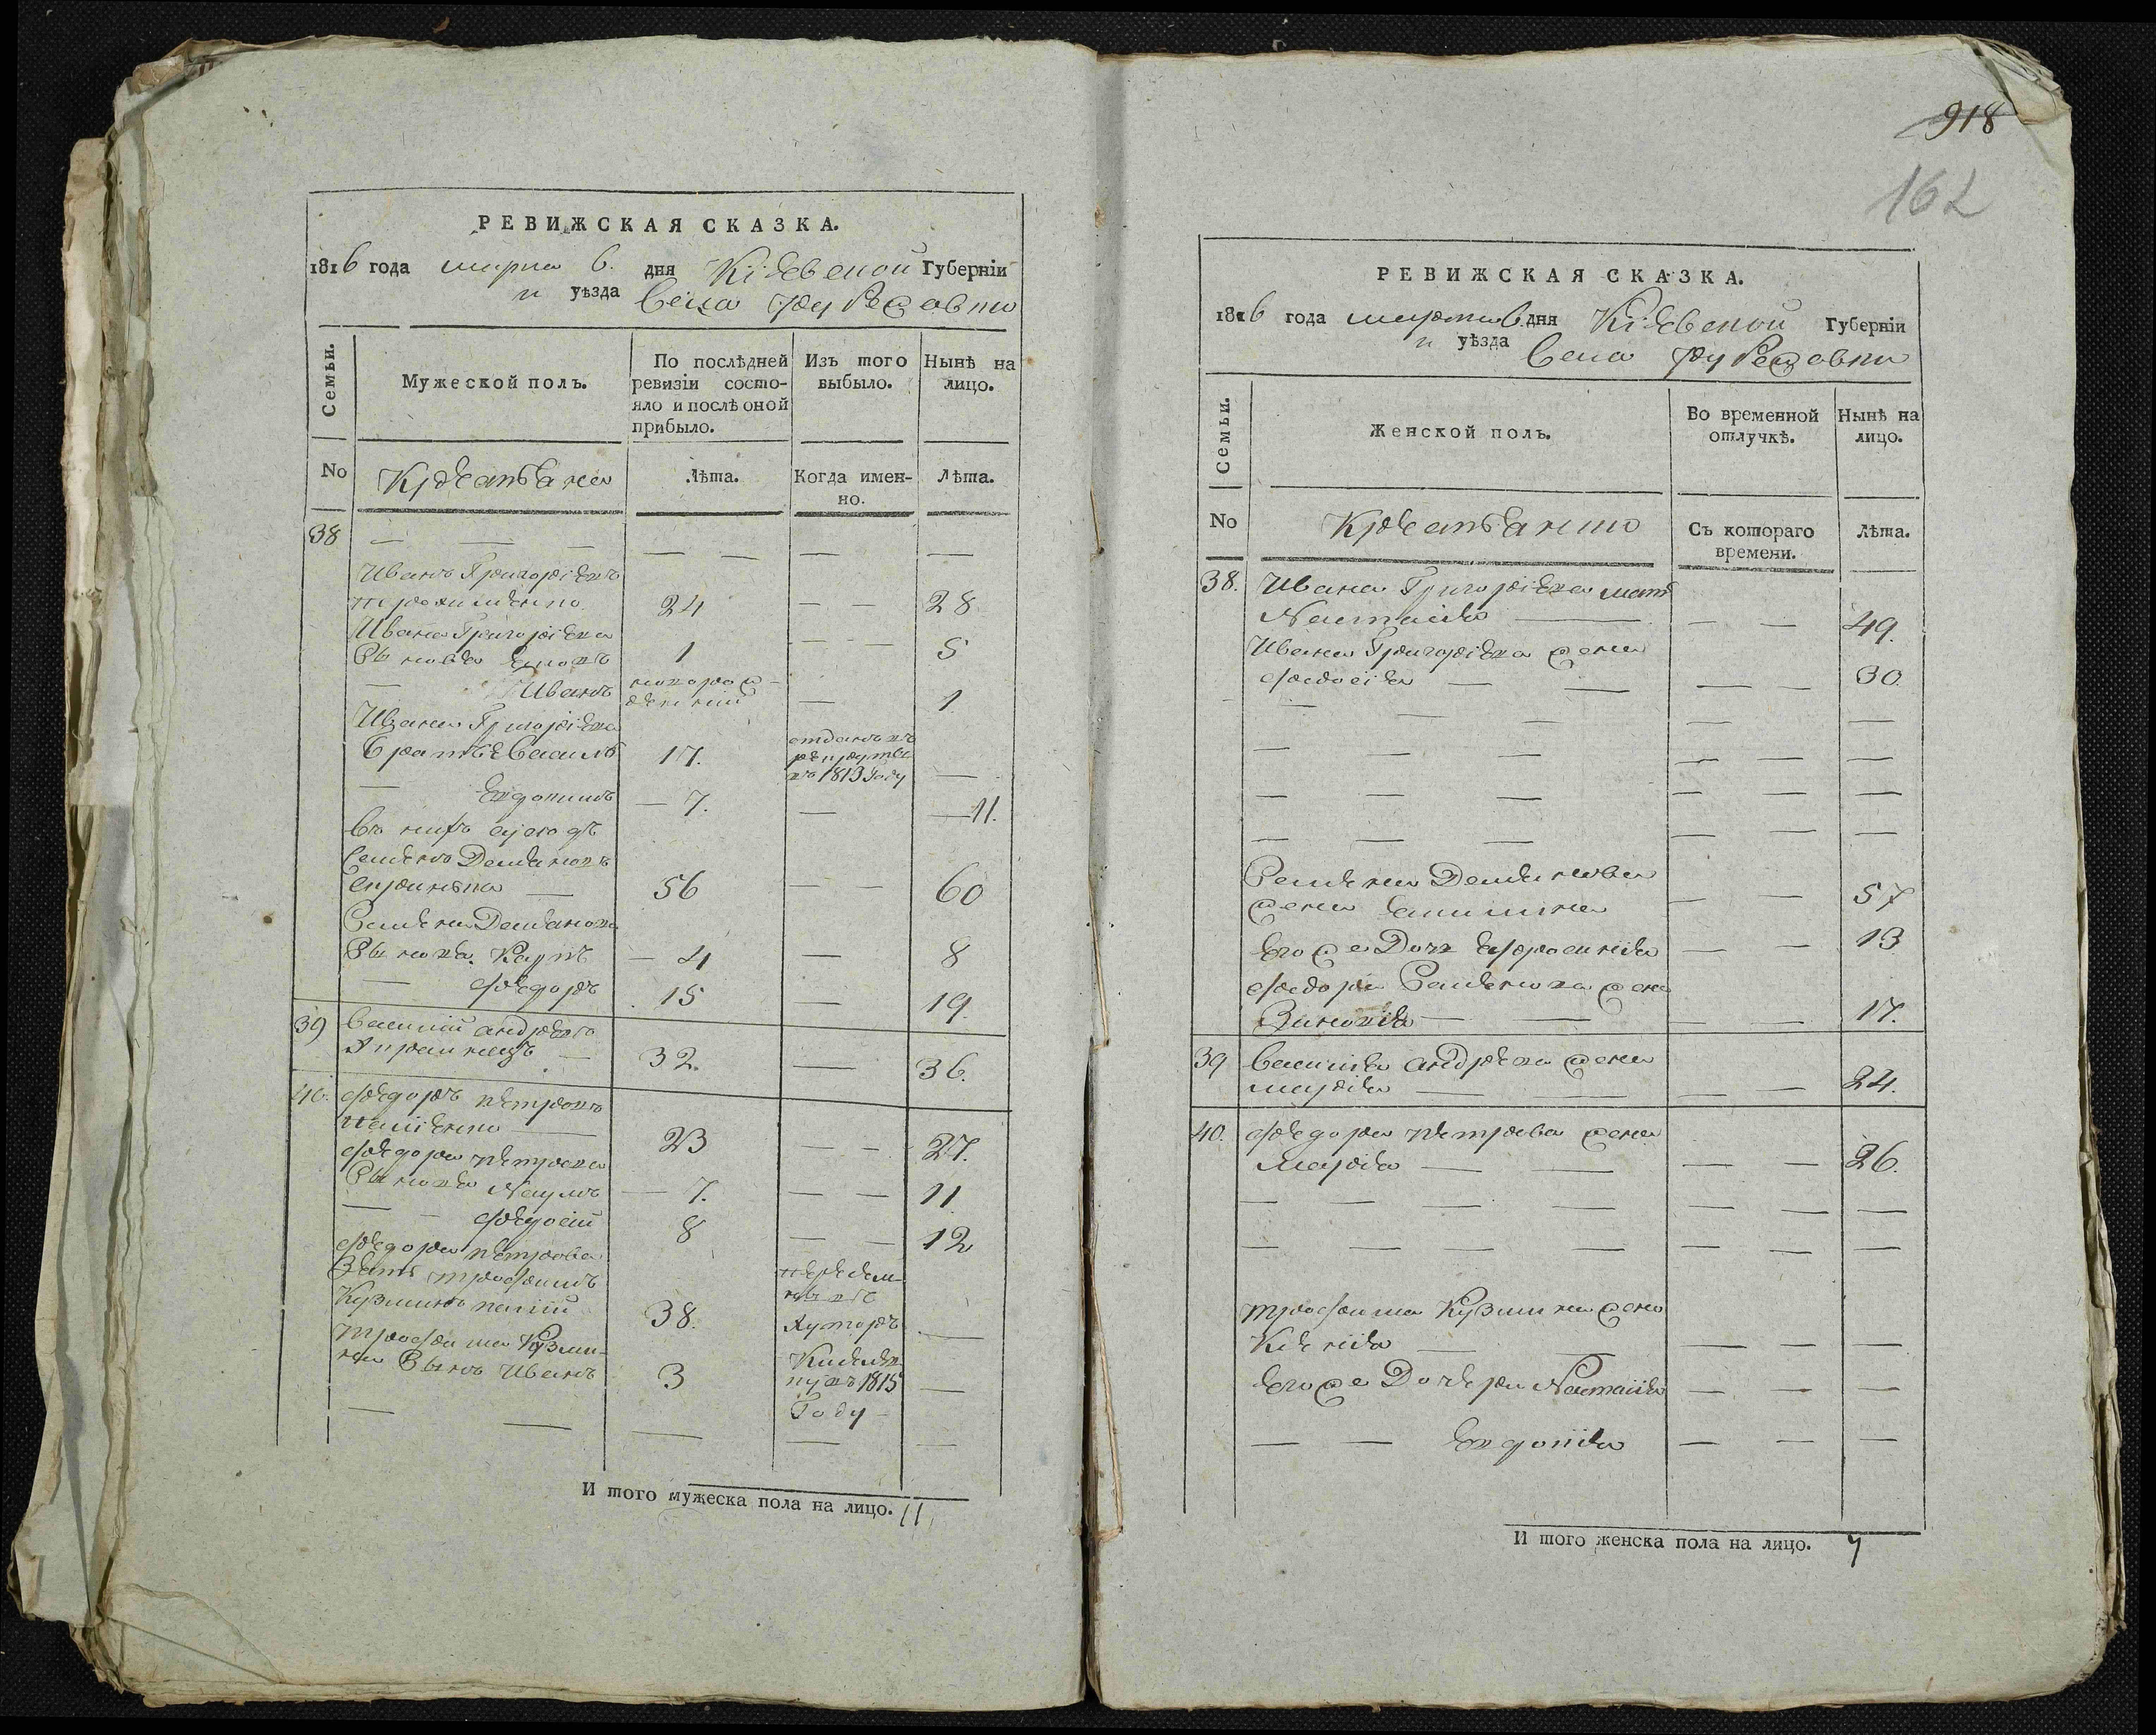 РЕВИЖСКАЯ СКАЗКА.
1816 года марта 6. дня Кіевской Губерніи
и уѣзда Села
Семьи.
Мужеской полъ.
По послѣдней ревизіи состо-
яло и послѣ оной
прибыло.
Изъ того
выбыло.
Нынѣ на
лицо.
No
Крестьяне
Лѣта.
Когда имен-
но.
Лѣта.
38
Иванъ Григоріевъ
24 28
Ивана Григоріева
Сыновья 1 5
Иванъ новорож-
денный 1
Ивана Григоріева
Братья Василь 17. отданъ въ
рекруты
въ 1813 году
Евдокимъ 7. 11.
Въ нихъ
Семенъ Демьяновъ
56 60
Семена Демьянова
Сыновья Карпъ 4 8
Федоръ 15 19.
39 Василий Андреевъ
32. 36.
40. Федоръ Петровъ
23 27.
Федора Петрова
Сыновья Наумъ 7. 11
Федосій 8 12
Федора Петрова
Зять Трофимъ
Кузминъ палій 38. хуторъ
Трофима Кузми-
на Сынъ Иванъ 3 1815
Году
И того мужеска пола на лицо. 11
918
162
РЕВИЖСКАЯ СКАЗКА.
1816 года марта 6 дня Кіевской Губерніи
и уѣзда Села
Семьи.
Женской полъ.
Во временной
отлучкѣ.
Нынѣ на
лицо.
No
Крестьянки
Съ котораго
времени.
Лѣта.
38. Ивана Григоріева мать
Настасія 49.
Ивана Григоріева жена
Федосія 30.
Семена Демьянова
жена 57
Его же Дочь Ефросинія 13
Федора Семенова жена
Зиновія 17.
39 Василія Андреева жена
Марія 24.
40. Федора Петрова жена
Марія 26.
Трофима Кузмина жена
Ксенія
Его же Дочери Настасія
Евдокія
И того женска пола на лицо. 7